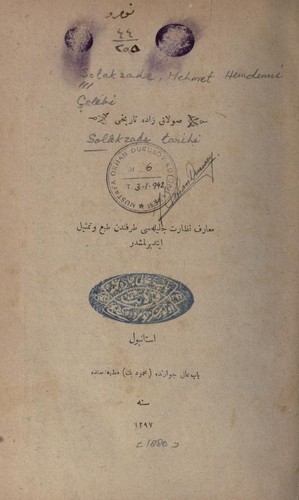 نومرو
٤٤
٢٥٥
Solakzade, Mehmet Hemdemî
Çelebi
صولاق زاده تاریخی
Solakzade tarihi
MUSTAFA ORHAN DURUSOY
6
3.1.942
معارف نظارت جلیله‌سی طرفندن طبع وتمثیل
ایتدیرلمشدر
استانبول
باب عالی جوارنده (محمود بك) مطبعه‌سنده
سنه
١٢٩٧
<1880>